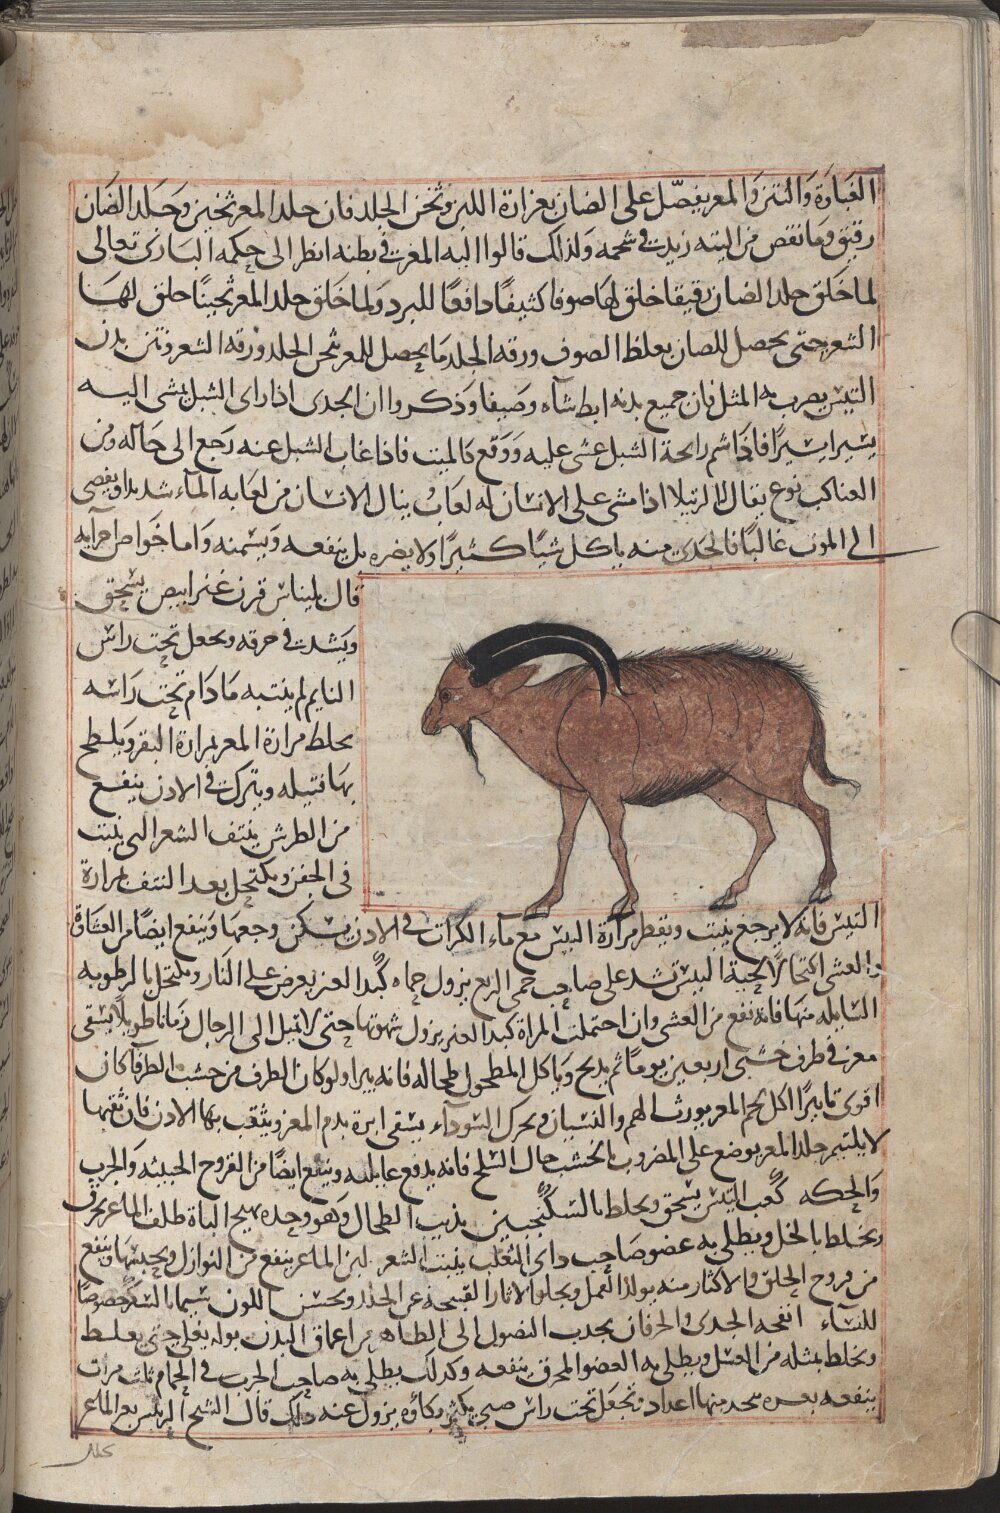 الغباوة والنتن والمعز يفضل على الضان بغزارة اللبن وثخن الجلد فان جلد المعز ثخين وجلد الضان
رقيق وما نقص من اليته زيدت في شحمه ولذلك قالوا الية المعز في بطنه انظر الى حكمة البارئ تعالى
لما خلق جلد الضان رقيقا خلق لها صوفا كثيفا دافعا للبرد ولما خلق جلد المعز ثخينا خلق لها
الشعر حتى يحصل للضان بغلظ الصوف ورقه الجلد ما يحصل للمعز بثخن الجلد ورقه الشعر ونتن بدن
التيس يضرب به المثل فان جميع بدنه ابط شاه وصيفا وذكروا ان الجدى اذا راى الشبل يمشى اليه
يسيرا يسيرا فاذا شم رايحة الشبل غشى عليه ووقع كالميت فاذا غاب الشبل عنه رجع الى حاله ومن
العناكب نوع يقال له الرتيلا اذا مشى على الانسان له لعاب ينال الانسان من لعابه الماء شديدا ويفضى
الى الموت غالبا فالجدى منه ياكل شيا كثيرا ولا يضره بل ينفعه ويسمنه واما خواص اجزايه
قال بليناس قرن عنز ابيض يسحق
ويشد في خرقه ويجعل تحت راس
النايم لم ينتبه ما دام تحت راسه
يخلط مرارة المعز بمرارة البقر ويلطخ
بها فتيله ويترك في الاذن ينفع
من الطرش ينتف الشعر التي ينبت
في الجفن ويكتحل بعد النتف بمرارة
التيس فانه لا يرجع ينبت ويقطر مرارة التيس مع ماء الكراث في الاذن يسكن وجعها وينفع ايضا من الغشاوة
والعشى اكتحالا لحية التيس تشد على صاحب حمى الربع يزول حماه كبد العنز يعرض على النار ويكتحل بالرطوبه
السايله منها فانه نفع من العشى وان احتملت المراة كبد العنز يزول شهوتها حتى لا تميل الى الرجال زمانا طويلا يسقى
معز في ظرف خشبى اربعين يوما ثم يذبح وياكل المطحول طحاله فانه يبرا ولو كان الظرف من خشب الطرفا كان
اقوى تاثيرا اكل لحم المعز يورث الهم والنسيان ويحرك السوداء يسقى ابرة بدم المعز ويثقب بها الاذن فان ثقبها
لا يلتيم جلد المعز يوضع على المضروب بالخشب حال السلخ فانه يدفع غايلته وينفع ايضا من القروح الخبيثه والجرب
والحكه كعب التيس يسحق ويخلط بالسكنجبين يذيب الطحال وهو وحده يهيج الباة ظلف الماعز يحرق
ويخلط بالخل ويطلى به عضو صاحب داء الثعلب ينبت الشعر لبن الماعز ينفع من النوازل ويحبسها وينفع
من قروح الحلق والاكثار منه يولد القمل ويجلو الاثار القبيحة عن الجلد ويحسن اللون سيما بالسكر خصوصا
للنساء انفحه الجدى والخرفان يجذب الفضول الى الظاهر من اعماق البدن بوله يغلى حتى يغلظ
ويخلط بمثله من العسل ويطلى به العضو المحرق ينفعه وكذلك يطلى به صاحب الجرب في الحمام ثلث مرات
ينفعه بعره منها اعداد وتجعل تحت راس صبي يكثر بكاؤه يزول عنه ذلك قال الشيخ الرئيس بعر الماعز
يحلل